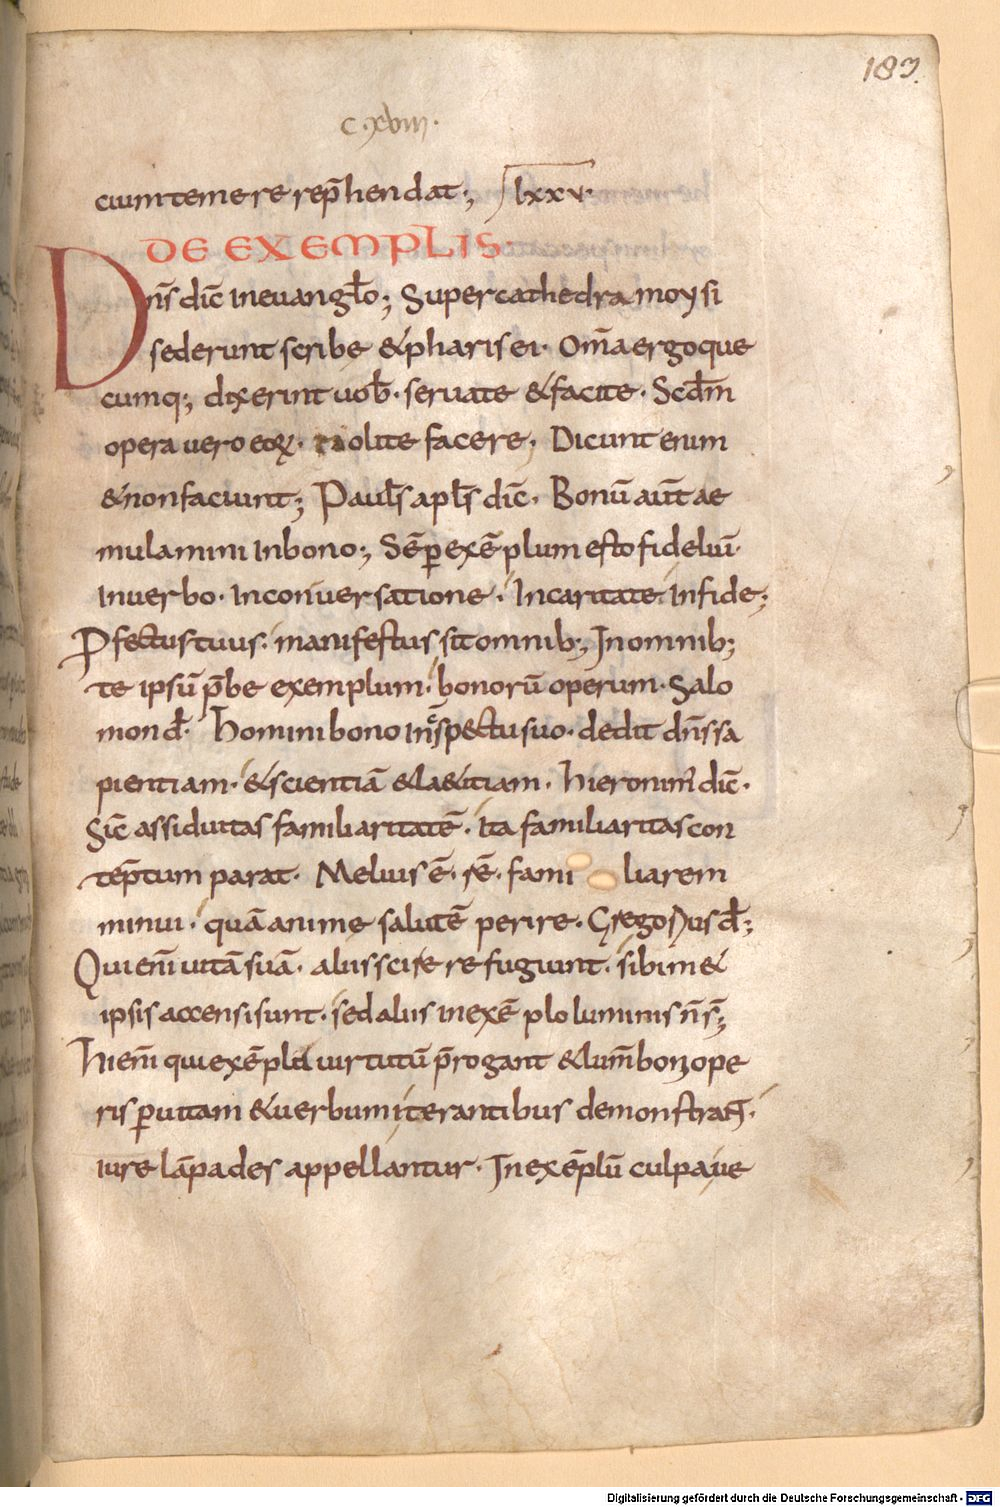 183.
c.xviii.
cium temere rep̄hendat; lxxv.
DE EXEMPLIS.
Dn̄s dic̄ in euangł̄o; Super cathedra moysi
sederunt scribe & pharisei. Om̄a ergo que
cumq; dixerint uob̄. seruate & facite. Scd̄m
opera uero eoꝝ. nolite facere; Dicunt enim
& non faciunt; Paul̄s apl̄s dic̄. Bonū aūt ae
mulamini in bono; Sēp̱ exēplum esto fideliū.
In uerbo. In conuersatione. In caritate. In fide;
Ꝓfectus tuus. manifestus sit omnib; In omnib;
te ipsū p̄be exemplum. bonorū operum. Salo
mon d̄. Homini bono in cōspectu suo. dedit dn̄s sa
pientiam. & scientiā & læ&itiam. Hieronim̄ dic̄.
Sic̄ assiduitas familiaritatē. Ita familiaritas con
tēptum parat. Melius ē. rē. fami liarem
minui. quā anime salutē perire. Gregorius d̄;
Qui eni̅ uitā suā. aliis scire refugiunt. sibim&
ipsis accensi sunt. sed aliis in exēplo luminis n̄ s̄;
Hi eni̅ qui exēpla uirtutū p̄rogant & lum̄ boni ope
ris ꝑ uitam & uerbum iterantibus demonstrant̄.
iure lāpades appellantur. In exēplū culpa ue
Digitalisierung gefördert durch die Deutsche Forschungsgemeinschaft - DFG